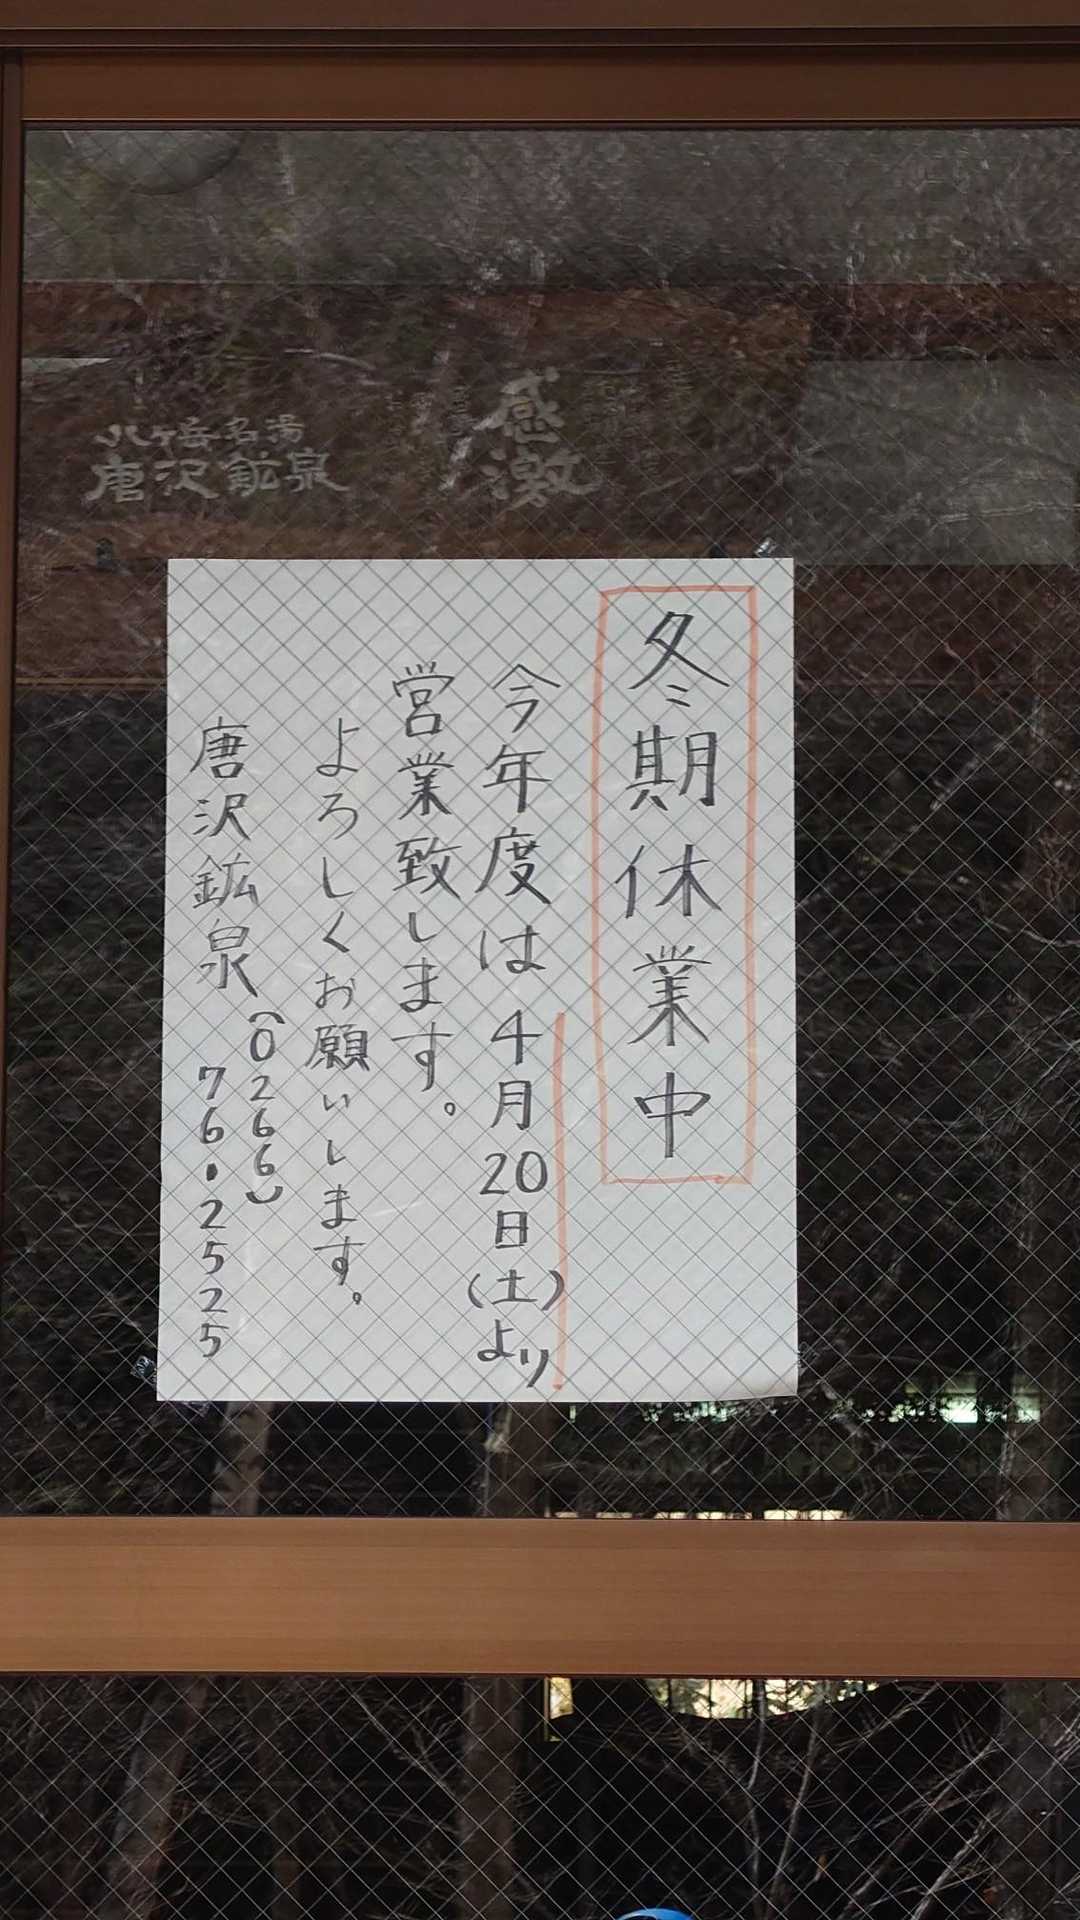 八ヶ岳名湯
唐沢鉱泉
感激
冬期休業中
今年度は4月20日(土)より
営業致します。
よろしくお願いします。
唐沢鉱泉(0266)
76.2525